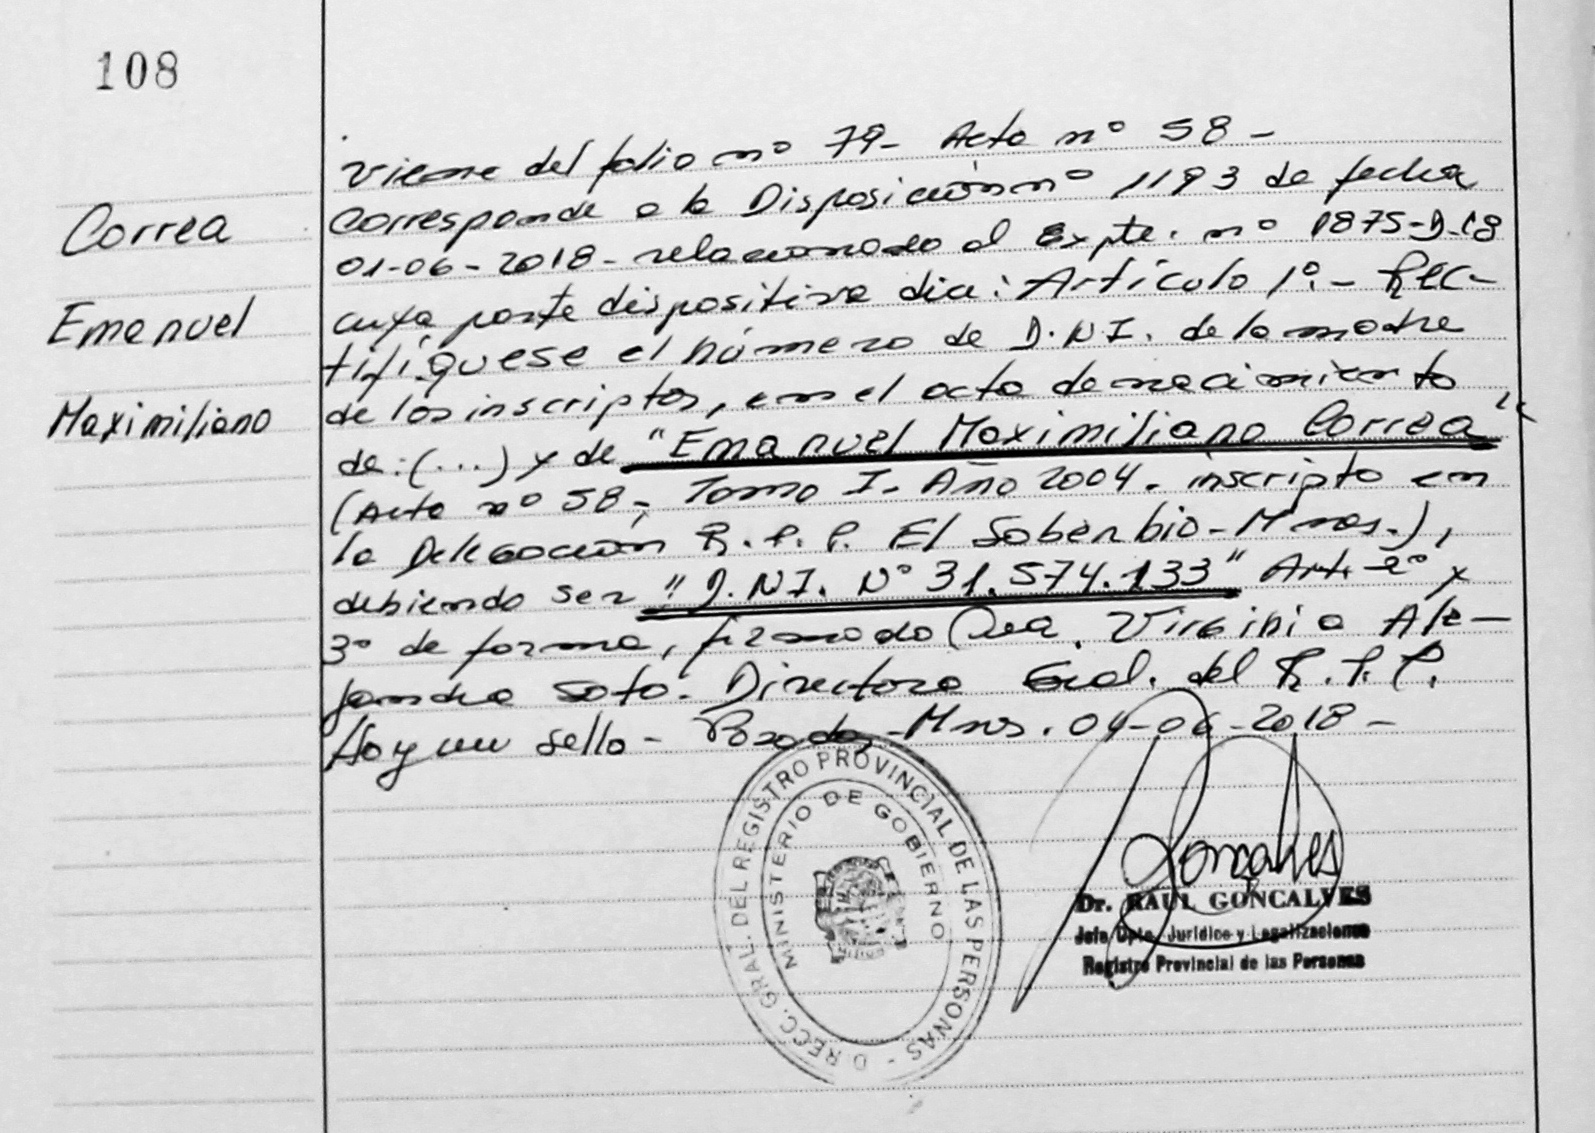 108
Correa
Emanuel
Maximiliano
Viene del folio nº 79- Acta nº 58-
Corresponde a la Disposición nº 1193 de fecha
01-06-2018- relacionado al Expte. nº 1875-D-18
cuya parte dispositiva dice: Artículo 1º.- Rec-
tifíquese el número de D.N.I. de la madre
de los inscriptos, en el acta de nacimiento
de: (...) y de "Emanuel Maximiliano Correa"
(Acta nº 58, Tomo I. Año 2004. inscripto en
la Delegación R.P.P. El Soberbio-Mnes.),
debiendo ser "D.NI. Nº 31.574.133" Art. 2º y
3º de forma, firmado Dra. Virginia Ale-
jandra Soto. Directora Gral. del R.P.P.
Hay un sello- Psdas-Mnes. 04-06-2018-
DIRECC. GRAL. DEL REGISTRO PROVINCIAL DE LAS PERSONAS -
MINISTERIO DE GOBIERNO
Goncalves
Dr. RAUL GONCALVES
Jefe Dpto. Jurídico y Legalizaciones
Registro Provincial de las Personas